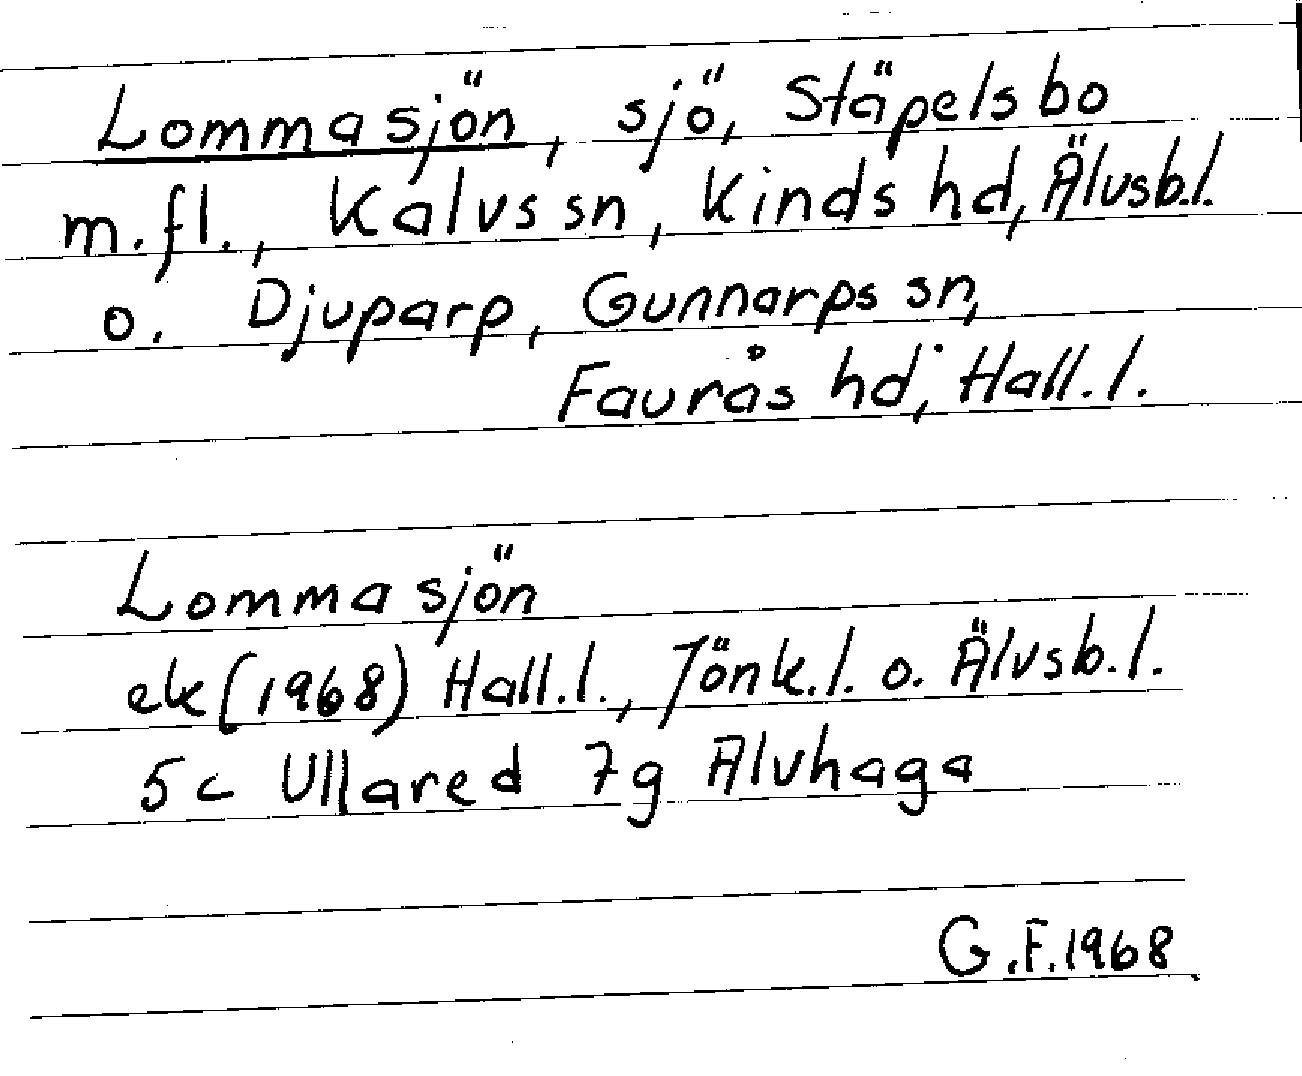 Lommasjön, sjö, Stäpelsbo
m.fl., Kalvs sn, Kinds hd, Älvsb.l.
o. Djuparp, Gunnarps sn,
Faurås hd, Hall.l.
Lommasjön
ek (1968) Hall.l., Jönk.l. o. Älvsb.l.
5c Ullared 7g Älvhaga
G.F.1968